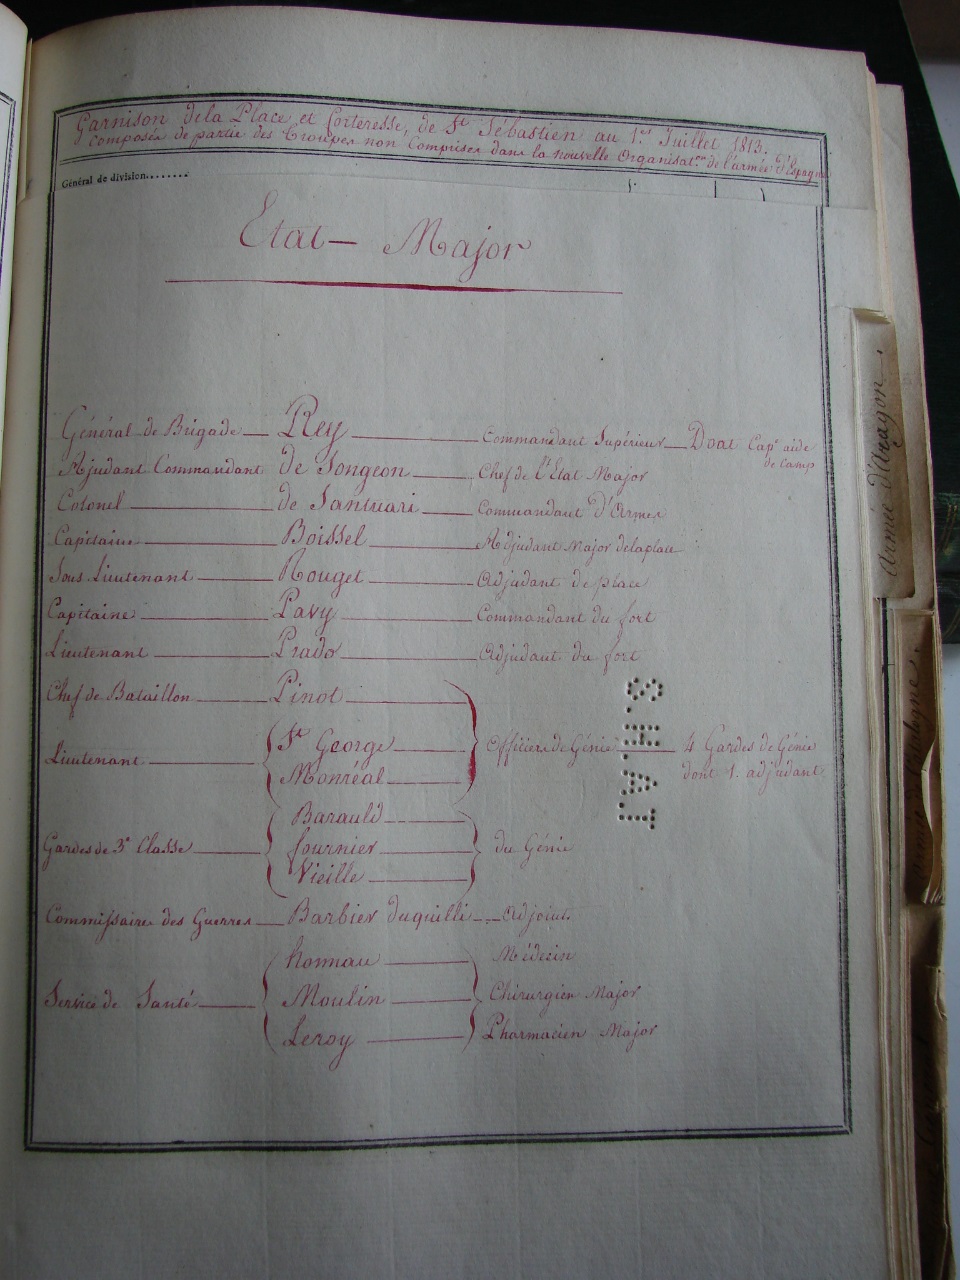 Garnison de la Place et forteresse, de St Sébastien au 1.er Juillet 1813.
Composée de partie des Troupes non Comprises dans la nouvelle Organisat.on de l'armée d'Espagne
Général de division........
Etat – Major
Général de Brigade — Rey — Commandant Supérieur — Doat Cap.e aide de camp
Adjudant Commandant de Songeon — Chef de l'Etat Major
Colonel — de Santuari — Commandant d'Armes
Capitaine — Boissel — Adjudant Major de la place
Sous Lieutenant — Rouget — Adjudant de place
Capitaine — Pavy — Commandant du fort
Lieutenant — Prado — Adjudant du fort
Chef de Bataillon — Pinot —
Lieutenant — St George — Officiers de Génie — 4 Gardes de Génie
Monréal — dont 1. adjudant
Barauld —
Gardes de 3e Classe — fournier — du Génie
Vieille —
Commissaire des Guerres — Barbier duquilli — Adjoint.
homau — Médecin
Service de Santé — Moulin — Chirurgien Major
Leroy — Pharmacien Major
S.H.A.T
Armée d'Aragon.